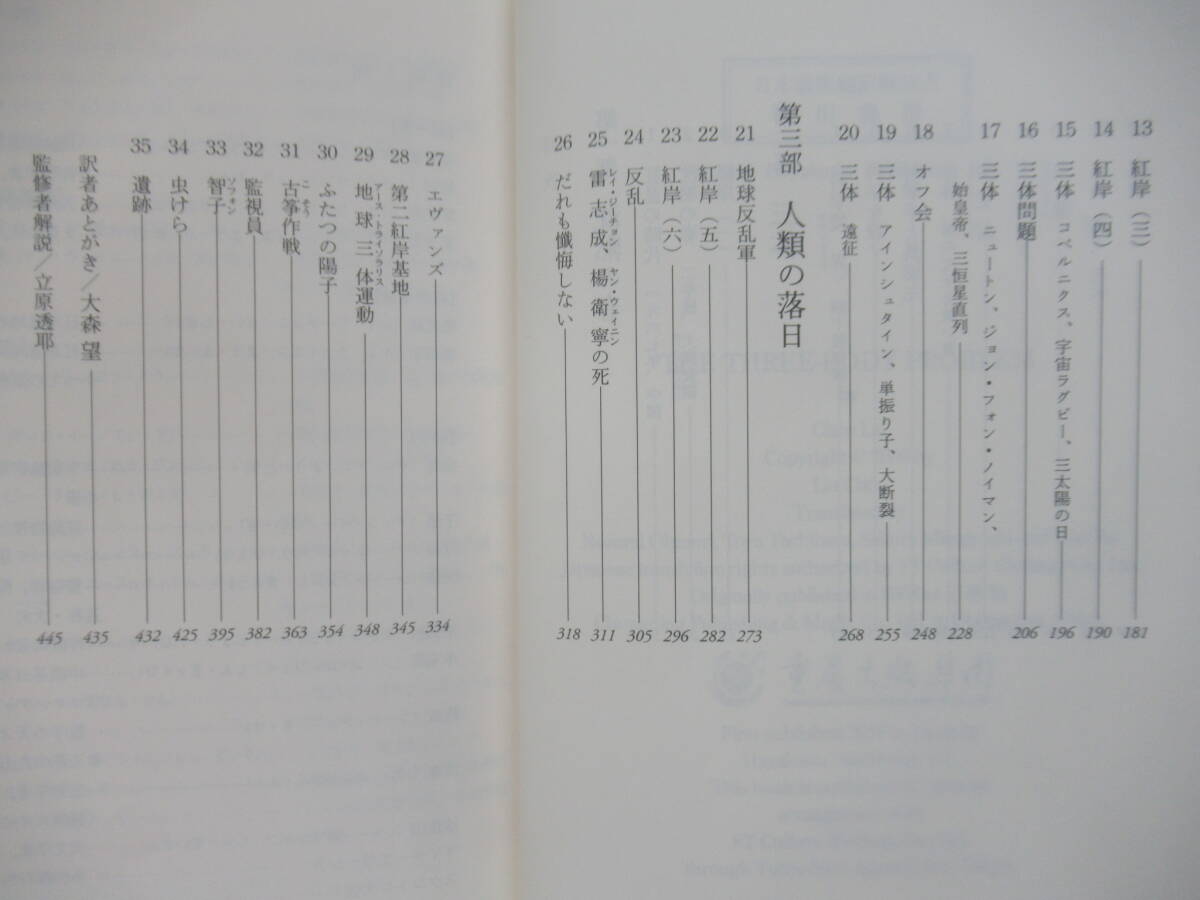 13 紅岸（三） 181
14 紅岸（四） 190
15 三体 コペルニクス、宇宙ラグビー、三太陽の日 196
16 三体問題 206
17 三体 ニュートン、ジョン・フォン・ノイマン、
始皇帝、三恒星直列 228
18 オフ会 248
19 三体 アインシュタイン、単振り子、大断裂 255
20 三体 遠征 268
第三部 人類の落日
21 地球反乱軍 273
22 紅岸（五） 282
23 紅岸（六） 296
24 反乱 305
25 雷志成、楊衛寧の死 311
レイ・ジーチョン ヤン・ウェイニン
26 だれも懺悔しない 318
27 エヴァンズ 334
28 第二紅岸基地 345
29 地球三体運動 348
アース・トライソラリス
30 ふたつの陽子 354
31 古筝作戦 363
こそう
32 監視員 382
33 智子 395
ソフォン
34 虫けら 425
35 遺跡 432
訳者あとがき／大森 望 435
監修者解説／立原透耶 445